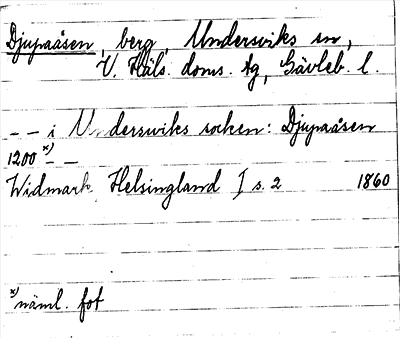 Djupaåsen, berg, Undersviks sn,
V. Häls. doms. tg, Gävleb. l.
– – i Undersviks socken: Djupaåsen
1200 x) – –
Widmark, Helsingland I s. 2 1860
x) näml. fot